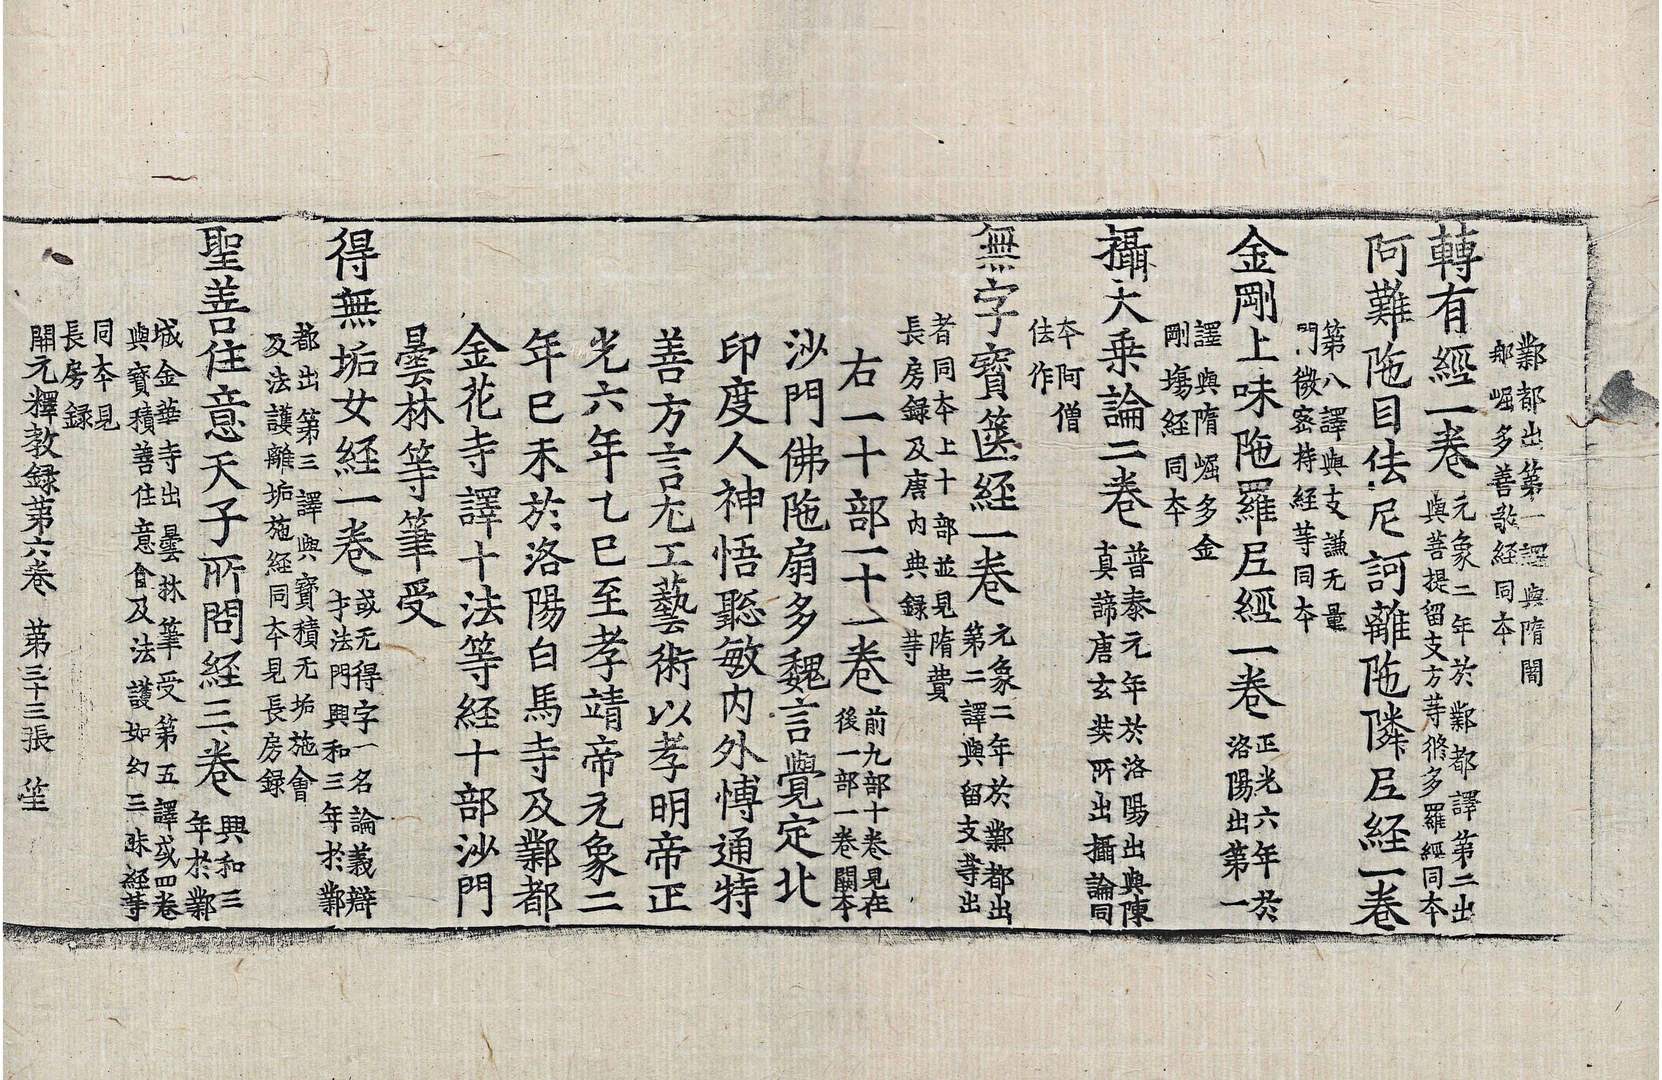 鄴都出第一譯與隋闍
那崛多善敬經同夲
轉有經一卷元象二年於鄴都譯第二出
與菩提留支方䓁脩多羅經同夲
阿難陁目佉尼訶離陁隣尼經一卷
第八譯與支謙无量
門微密持經䓁同夲
金剛上味陁羅尼經一卷正光六年於
洛陽出第一
譯與隋崛多金
剛塲經同夲
攝大乗論二卷普泰元年於洛陽出與陳
真諦唐玄奘所出攝論同
夲阿僧
佉作
無字寶篋經一卷元象二年於鄴都出
第二譯與留支䓁出
者同夲上十部並見隋費
長房録及唐内典録䓁
右一十部一十一卷前九部十卷見在
後一部一卷闕夲
沙門佛陁扇多魏言覺定北
印度人神悟聡敏内外博通特
善方言尤工藝術以孝明帝正
光六年乙巳至孝靖帝元象二
年巳未於洛陽白馬寺及鄴都
金花寺譯十法等経十部沙門
曇林等筆受
得無垢女経一卷或无得字一名論義辯
才法門興和三年於鄴
都出第三譯與寶積无垢施會
及法護離垢施經同夲見長房録
聖善住意天子所問経三卷興和三
年於鄴
城金華寺出曇林筆受第五譯或四卷
與寶積善住意會及法護如幻三昧經䓁
同夲見
長房録
開元釋教録第六卷　第三十三張　笙